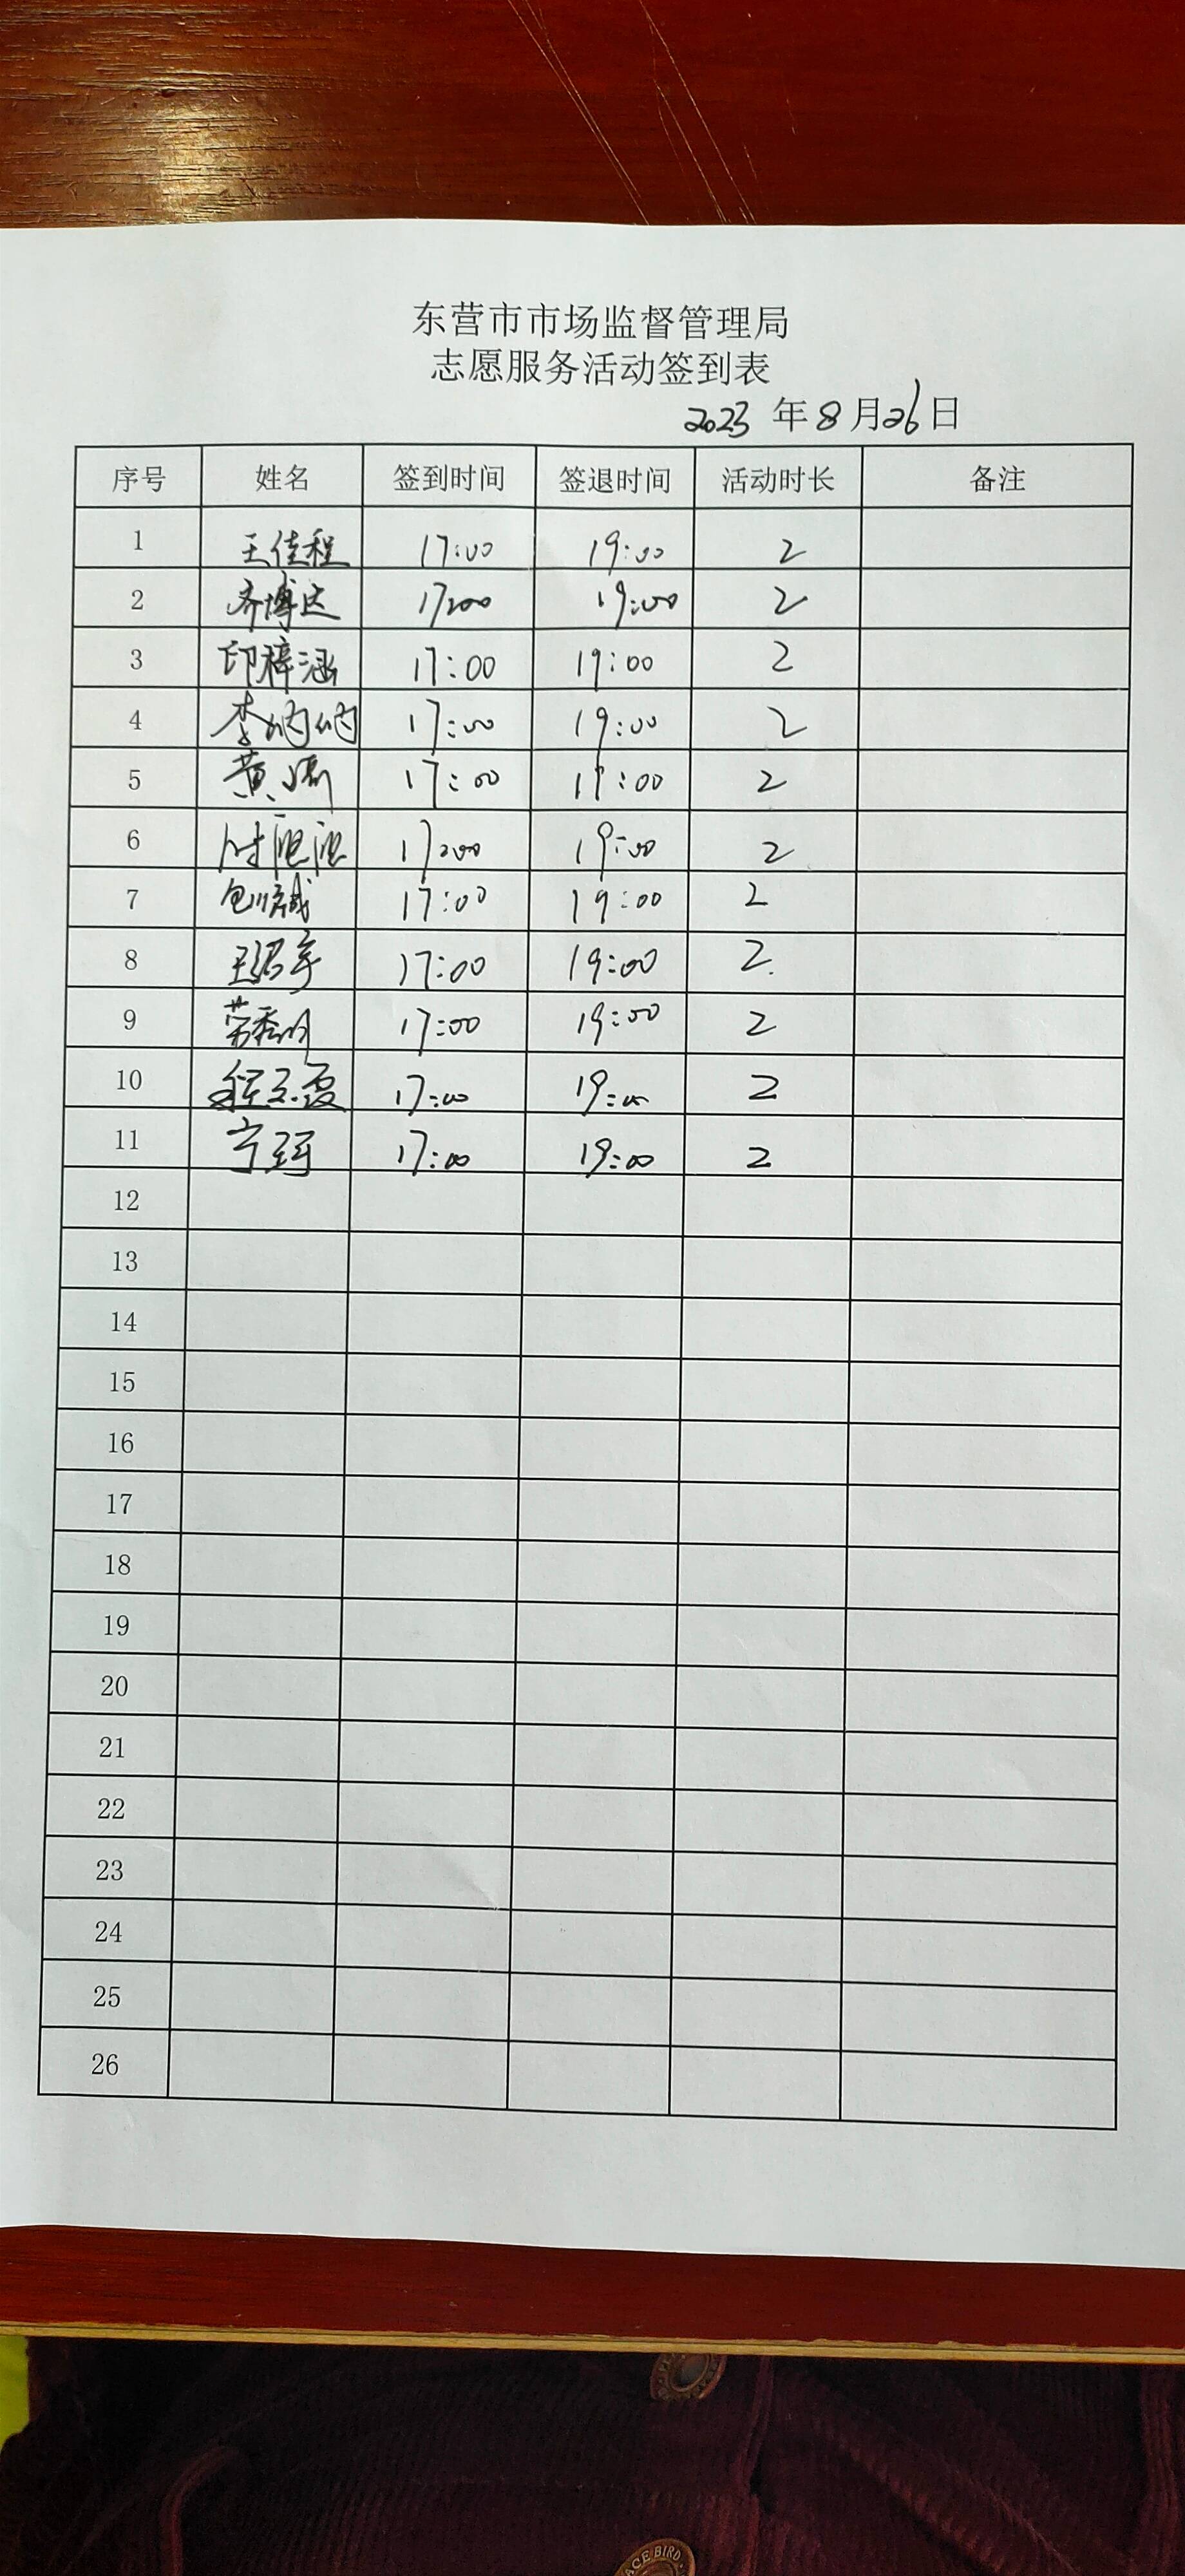 东营市市场监督管理局
志愿服务活动签到表
2023 年 8 月 26 日
序号 姓名 签到时间 签退时间 活动时长 备注
1 王佳程 17:00 19:00 2
2 齐博达 17:00 19:00 2
3 印梓涵 17:00 19:00 2
4 李 17:00 19:00 2
5 黄 17:00 19:00 2
6 17:00 19:00 2
7 17:00 19:00 2
8 王绍宇 17:00 19:00 2.
9 17:00 19:00 2
10 17:00 19:00 2
11 宁 17:00 19:00 2
12
13
14
15
16
17
18
19
20
21
22
23
24
25
26